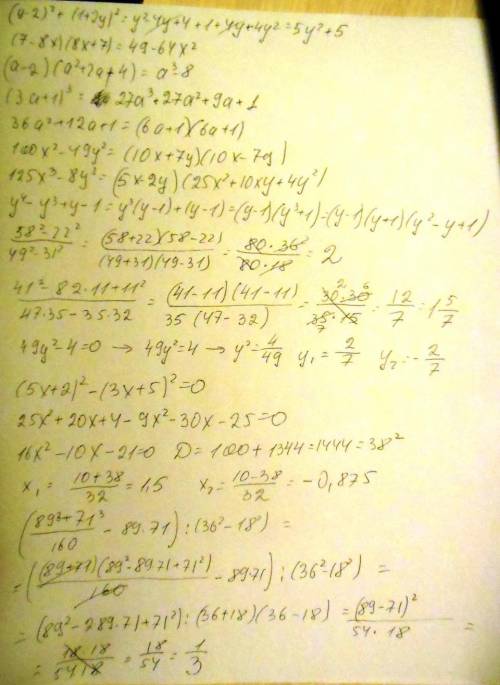 (y-2)² + (1+2y)² = y² - 4y + 4 + 1 + 4y + 4y² = 5y² + 5
(7 - 8x)(8x+7) = 49 - 64x²
(a-2)(a²+2a+4) = a³-8
(3a+1)³ = 27a³+27a²+9a+1
36a²+12a+1 = (6a+1)(6a+1)
100x²-49y² = (10x+7y)(10x-7y)
125x³-8y³ = (5x-2y)(25x²+10xy+4y²)
y⁴-y³+y-1 = y³(y-1)+(y-1) = (y-1)(y³+1) = (y-1)(y+1)(y²-y+1)
(58²-22²)/(49²-31²) = ((58+22)(58-22))/((49+31)(49-31)) = (80·36²)/(80·18) = 2
(41²-82·11+11²)/(47·35-35·32) = ((41-11)(41-11))/(35(47-32)) = (30·30)/(35·15) = 12/7 = 1 5/7
49y²-4=0 → 49y²=4 → y²=4/49 y₁=2/7 y₂=-2/7
(5x+2)²-(3x+5)²=0
25x²+20x+4-9x²-30x-25=0
16x²-10x-21=0 D=100+1344=1444=38²
x₁=(10+38)/32=1,5 x₂=(10-38)/32=-0,875
((89³+71³)/160 - 89·71):(36²-18²) =
=(((89+71)(89²-89·71+71²))/160 - 89·71):(36²-18²) =
=(89²-289·71+71²):(36+18)(36-18) = (89-71)²/(54·18) =
= (18·18)/(54·18) = 18/54 = 1/3